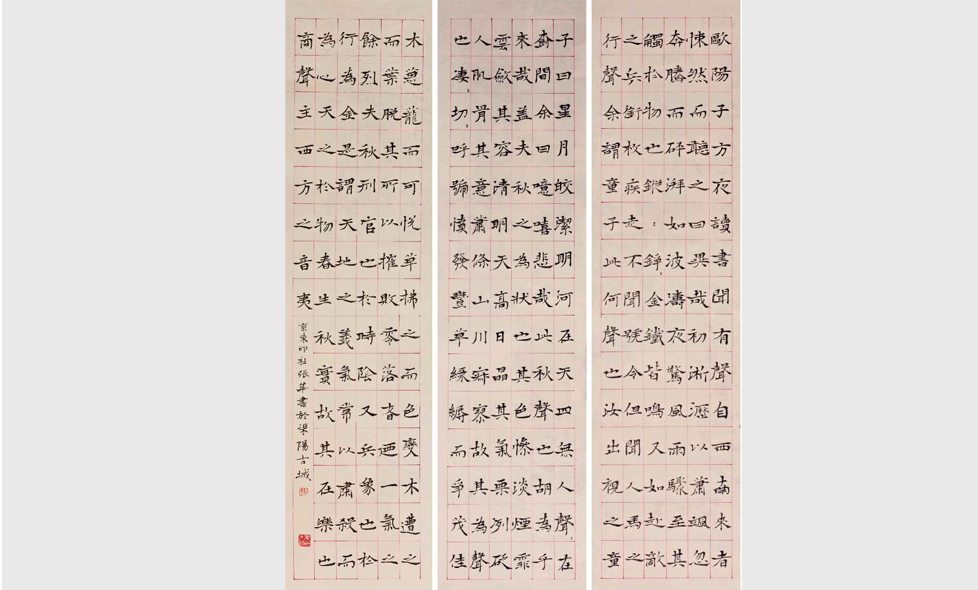 歐陽子方夜讀書聞有聲自西南來者
悚然而聽之曰異哉初淅瀝以蕭颯忽
奔騰而砰湃如波濤夜驚風雨驟至其
觸於物也鏦〻錚〻金鐵皆鳴又如赴敵
之兵銜枚疾走不聞號令但聞人馬之
行聲余謂童子此何聲也汝出視之童
子曰星月皎潔明河在天四無人聲〻在
間余曰噫嘻悲哉此秋聲也胡為乎
來哉蓋夫秋之為狀也其色慘淡煙霏
雲斂其容清明天高日晶其氣栗列砭
人肌骨其意蕭條山川寂寥故其為聲
也淒〻切〻呼號憤發豐草綠縟而爭茂佳
木蔥蘢而可悅草拂之而色變木遭之
而葉脫其所以摧敗零落者迺一氣之
餘烈夫秋刑官也於時陰又兵象也於
行為金是謂天地之義氣常以肅殺而
為心天之於物春生秋實故其在樂也
商聲主西方之音夷
京東印社張華書於梁陽古城